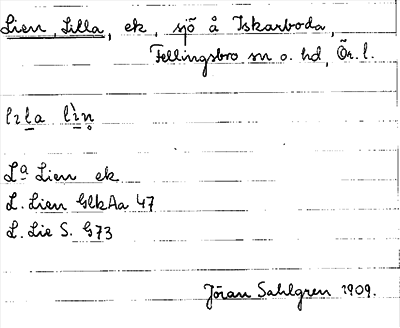 Lien, Lilla, ek, sjö å Iskarboda,
Fellingsbro sn o. hd, Ör. l.
lɪla lìn̥
Lᵃ Lien ek
L. Lien GlkAa 47
L. Lie S. G73
Jöran Sahlgren 1909.